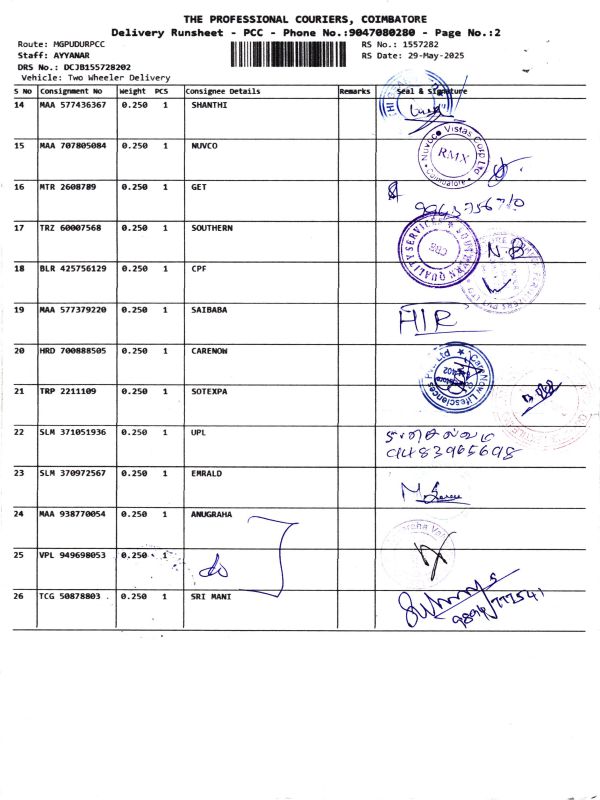 THE PROFESSIONAL COURIERS, COIMBATORE
Delivery Runsheet - PCC - Phone No.:9047080280 - Page No.:2
Route: MGPUDURPCC RS No.: 1557282
Staff: AYYANAR RS Date: 29-May-2025
DRS No.: DCJB155728202
Vehicle: Two Wheeler Delivery
S NO Consignment No Weight PCS Consignee Details Remarks Seal & Signature
14 MAA 577436367 0.250 1 SHANTHI
15 MAA 707805084 0.250 1 NUVCO
Nuvoco Vistas Corp Ltd
RMX
Coimbatore
16 MTR 2608789 0.250 1 GET
17 TRZ 60007568 0.250 1 SOUTHERN
SOUTHERN QUALITY SERVICES
CBE
18 BLR 425756129 0.250 1 CPF
N.B
19 MAA 577379220 0.250 1 SAIBABA
HIR
20 HRD 700888505 0.250 1 CARENOW
CareNow Lifesciences Pvt Ltd
21 TRP 2211109 0.250 1 SOTEXPA
22 SLM 371051936 0.250 1 UPL
9483965698
23 SLM 370972567 0.250 1 EMRALD
24 MAA 938770054 0.250 1 ANUGRAHA
25 VPL 949698053 0.250 1
do
26 TCG 50878803 0.250 1 SRI MANI